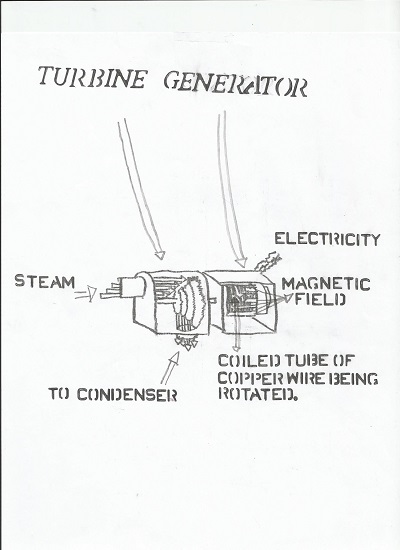 TURBINE GENERATOR
ELECTRICITY
STEAM
MAGNETIC
FIELD
COILED TUBE OF
COPPER WIRE BEING
ROTATED.
TO CONDENSER